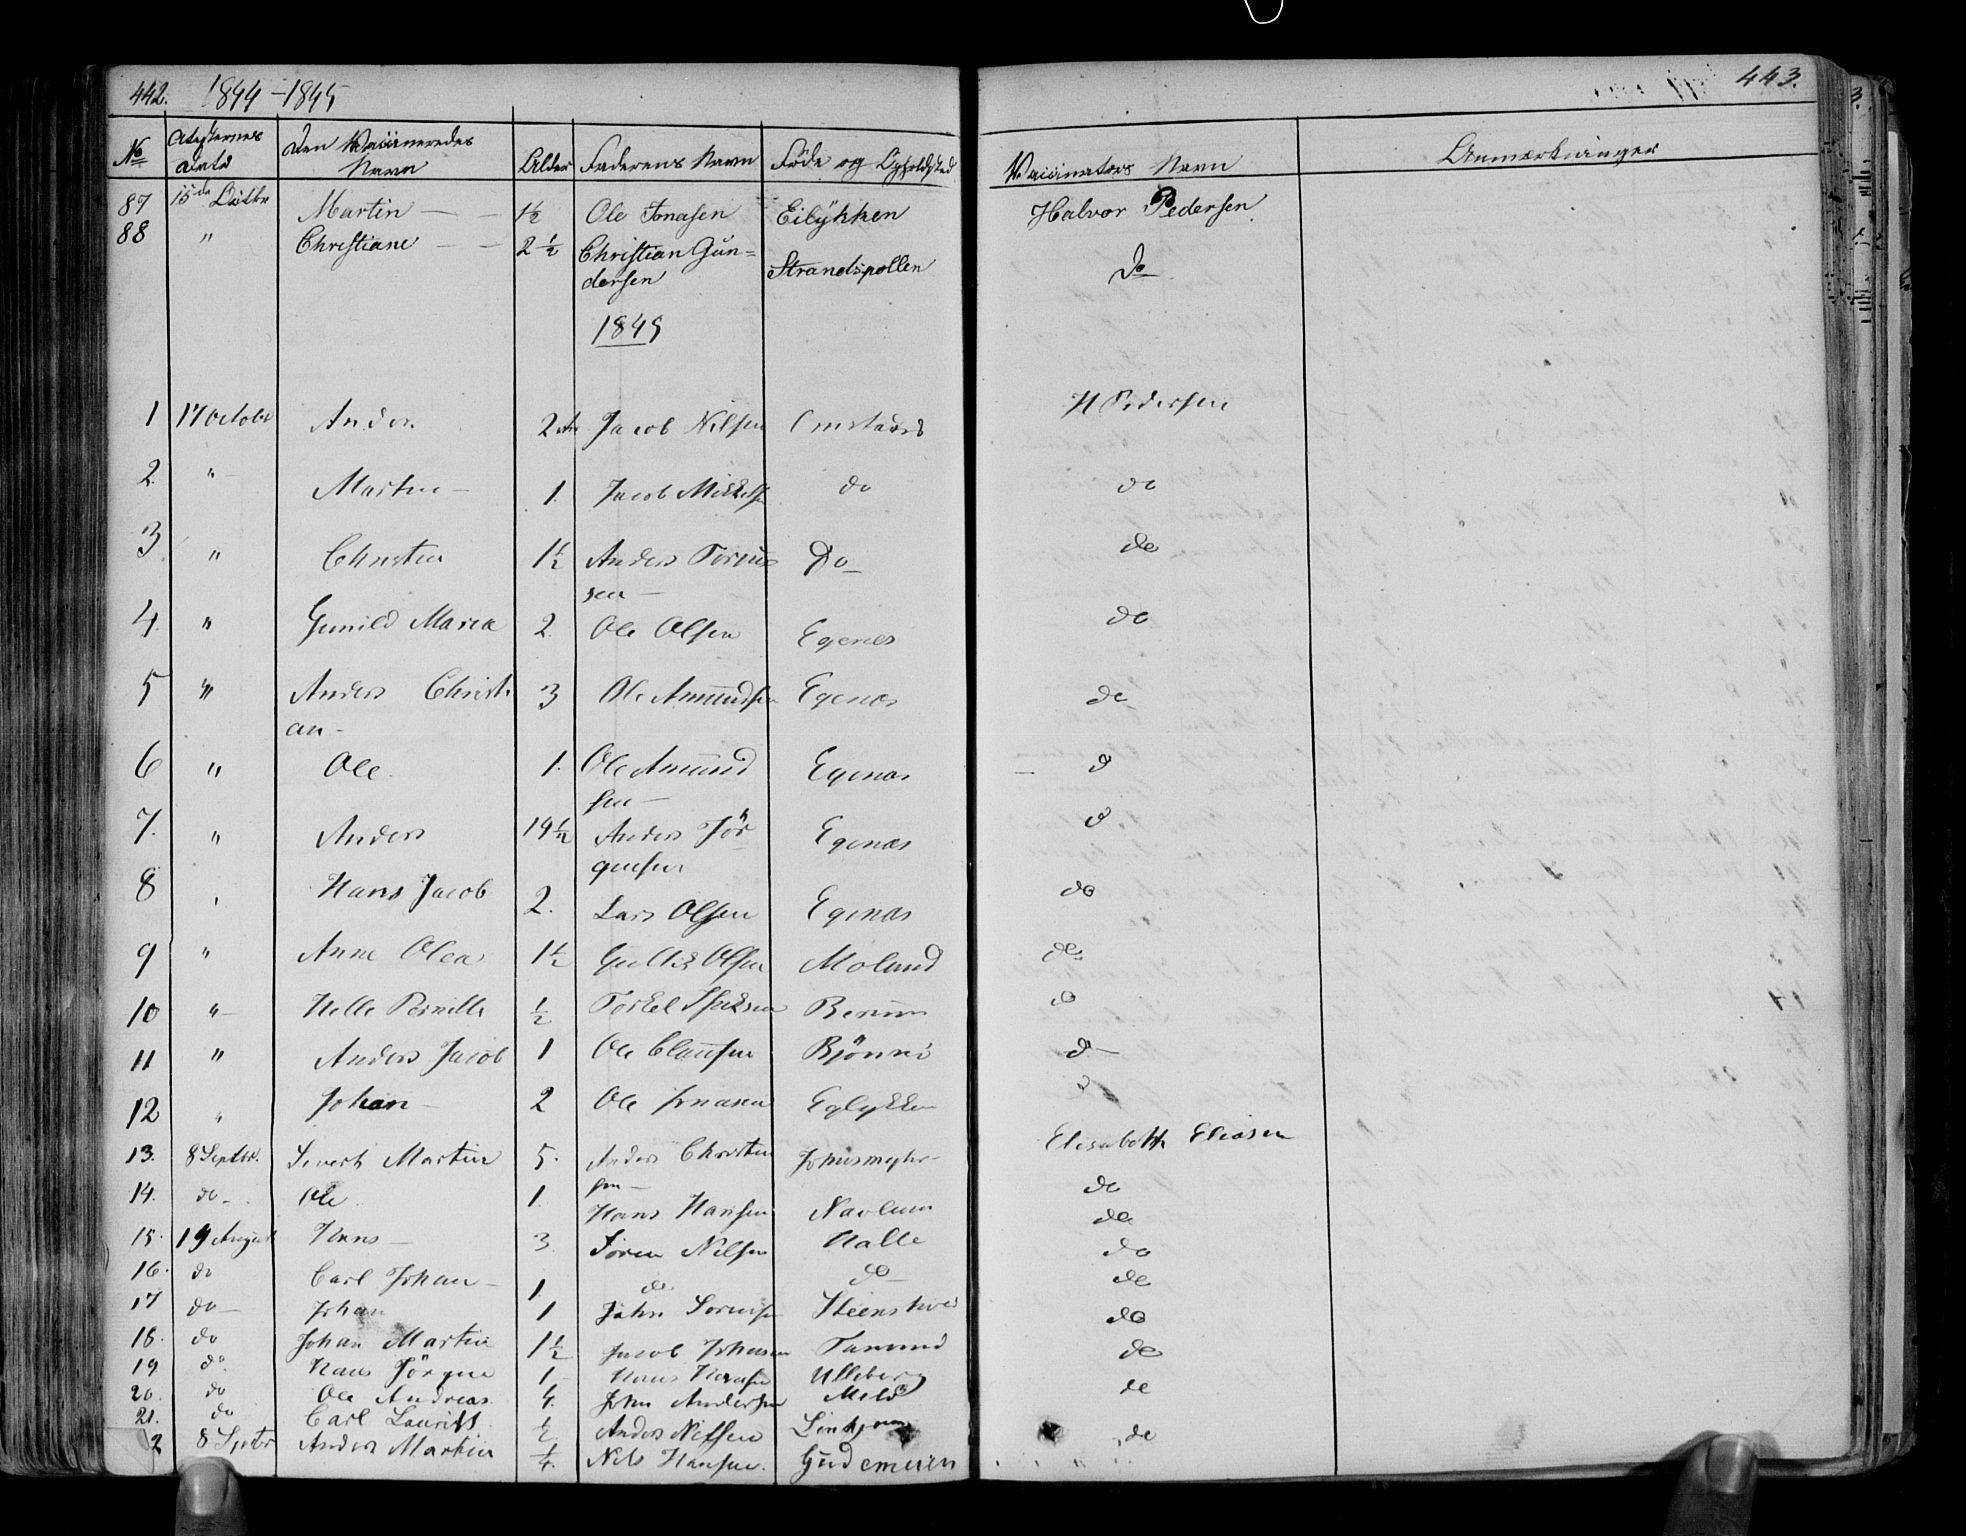 442. 1844-1845
443.
No Attesternes Datd Den Vaccineredes Navn Alder Faderens Navn Föde og Opholdsted Vaccinators Navn Anmærkninger
87 15de Martin — — 1½ Ole Jonasen Eilykken Halvor Pedersen
88 " Christiane — — 2½ Christian Gun=
dersen Strandspollen Do
1845
1 17 October Anders 2 Jacob Nilsen Omstad H Pedersen
2. " Martin — 1. Jacob Mikkels do do
3 " Christen 1½ Anders
sen — Do do
4. " Gunild Maria 2. Ole Olsen Egenes do
5 " Anders Christi
an - 3 Ole Amundsen Egenes do
6 " Ole 1. Ole Amund
sen — Egenæs d
7. " Anders 14½ Anders Jör
gensen Egenæs d
8 " Hans Jacob 2. Lars Olsen Egenæs do
9 " Anne Olea 1½ Gullik Olsen Moland do
10 " Helle Pernille ½ Torkel do
11 " Anders Jacob 1 Ole Clausen Bjönnes d—
12 " Johan — 2 Ole Jonasen Eglykken
13. 8 Septbr. Sivert Martin 5. Anders Christen
sen — Elisabeth Eliasen
14. do - Ole 1. Hans Hansen Navlum do
15. 19 August Hans — 3. Sören Nilsen Halle do
16. do Carl Johan — 1 do do do
17 do — Johan 1 John Steensholt do
18. do Johan Martin 1½ Jacob Johansen Tanum do
19 do Hans Jörgen 1 Hans Hansen Ulleberg do
20. do Ole Andreas 4. John Andersen do
21. do Carl Laurits ½ Anders Nilsen
2 8 Septbr Anders Martin ¼. Nils Hansen. do